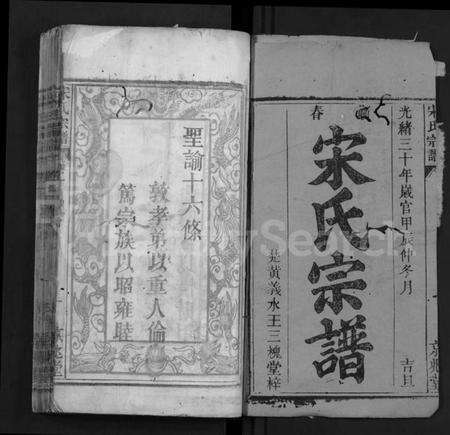 宋氏宗譜
光緒三十年歲官甲辰仲冬月
吉旦
春
宋氏宗譜
黃義水王三槐堂梓
聖諭十六條
敦孝弟以重人倫
篤宗族以昭雍睦